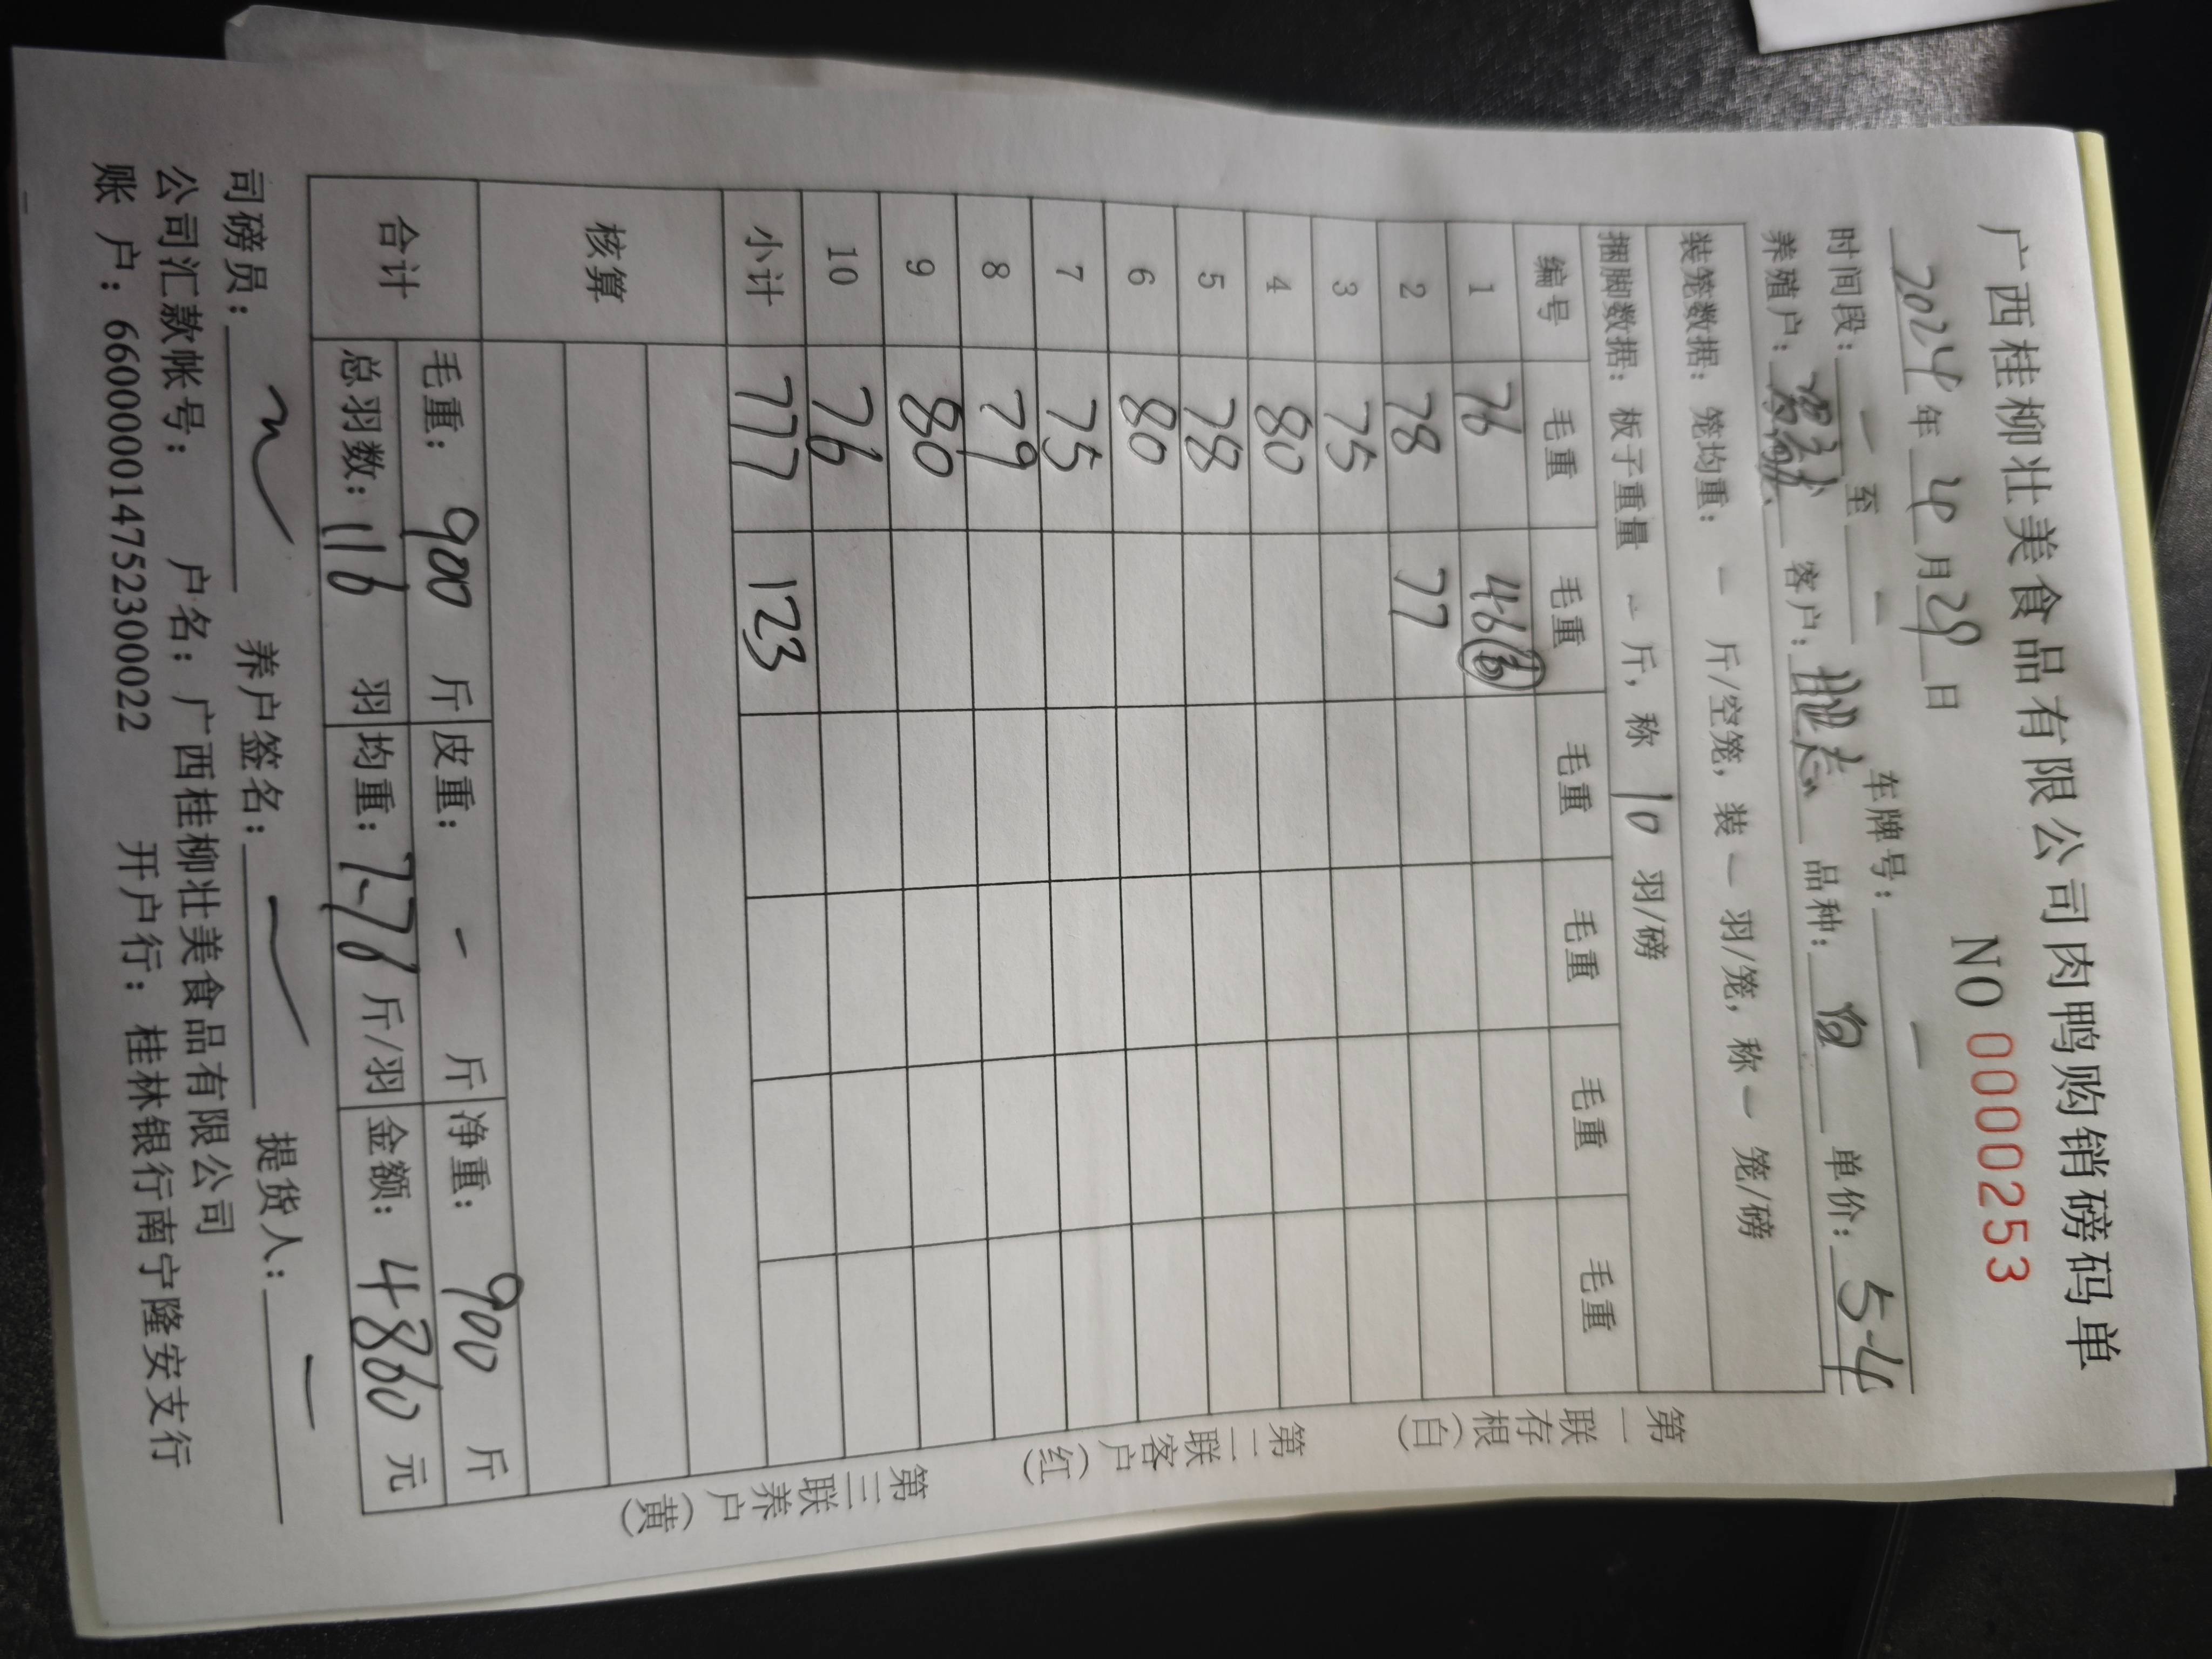 广西桂柳壮美食品有限公司肉鸭购销磅码单
2024年4月29日 NO 0000253
时间段: — 至 — 车牌号: —
养殖户: 客户: 品种: 单价: 5.4
装笼数据: 笼均重: — 斤/空笼, 装 — 羽/笼, 称 — 笼/磅
捆脚数据: 板子重量 — 斤, 称 10 羽/磅
编号 毛重 毛重 毛重 毛重 毛重 毛重
1 76 46⑥
2 78 77
3 75
4 80
5 78
6 80
7 75
8 79
9 80
10 76
小计 777 123
核算
合计 毛重: 900 斤 皮重: — 斤 净重: 900 斤
总羽数: 116 羽 均重: 7.76 斤/羽 金额: 4860 元
司磅员: 养户签名: 提货人: —
公司汇款帐号: 户名: 广西桂柳壮美食品有限公司
账 户: 660000014752300022 开户行: 桂林银行南宁隆安支行
第一联存根(白)
第二联客户(红)
第三联养户(黄)